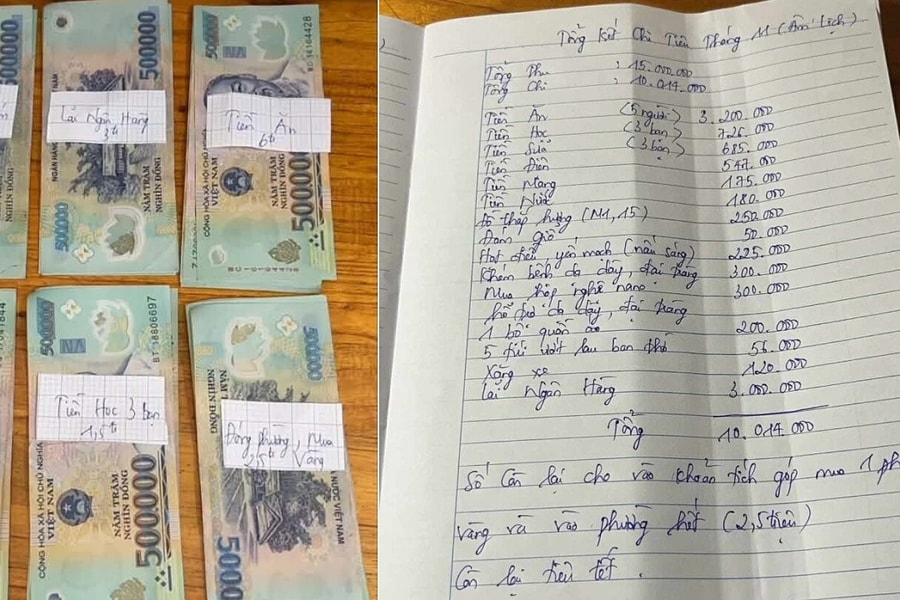 500000
Lãi Ngân Hàng
3tr
NĂM TRĂM
NGHÌN ĐỒNG
500000
500000
BD 14164428
Tiền Ăn
6tr
CỘNG HÒA XÃ HỘI CHỦ NGHĨA
VIỆT NAM
NĂM TRĂM
NGHÌN ĐỒNG
500000
500000
BT 18806697
Tiền Học 3 bạn
1,5tr
CỘNG HÒA XÃ HỘI CHỦ NGHĨA
VIỆT NAM
NĂM TRĂM
NGHÌN ĐỒNG
500000
500000
NĂM TRĂM
NGHÌN ĐỒNG
Đóng phường, Mua
2,5tr Vàng
NƯỚC VIỆT NAM
Tổng Kết Chi Tiền Tháng 11 (Âm Lịch)
Tổng Thu : 15.000.000
Tổng Chi : 10.014.000
Tiền Ăn (5 người) 3.200.000
Tiền Học (3 bạn) 726.000
Tiền Sữa (3 bạn) 685.000
Tiền Điện 547.000
Tiền Mạng 175.000
Tiền Nước 180.000
Đồ thắp hương (M1, 15) 250.000
Đám giỗ 50.000
Hạt điều, yến mạch (nấu sáng) 225.000
Khám bệnh dạ dày, đại tràng 300.000
Mua hộp nghệ nano 300.000
hỗ trợ dạ dày, đại tràng
1 bộ quần áo 200.000
5 túi ướt lau bàn thờ 56.000
Xăng xe 120.000
Lãi Ngân Hàng 3.000.000
Tổng 10.014.000
Số Còn lại cho vào khoản tích góp mua 1 ph
vàng và vào phường hết (2,5 triệu)
Còn lại tiêu tết.